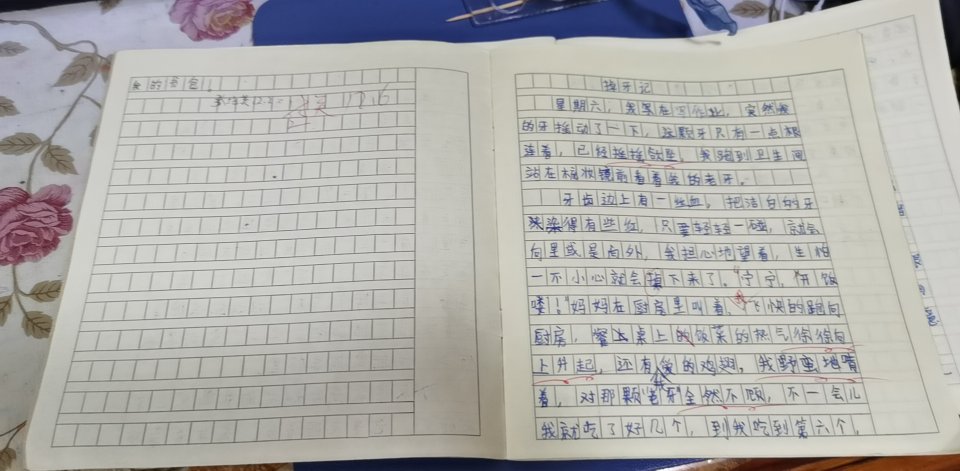 的书包!
掉牙记
星期六,我呆在写作业,突然我
的牙摇动了一下,这颗牙只有一点根
连着,已经摇摇欲坠,我跑到卫生间
站在梳妆镜前看着我的老牙。
牙齿边上有一些血,把洁白的牙
染得有些红,只要轻轻一碰,就会
向里或是向外,我担心地望着,生怕
一不小心就会掉下来了。"宁宁,开饭
喽!"妈妈在厨房里叫着,我飞快的跑向
厨房,餐桌上的饭菜的热气徐徐向
上升起,还有我的鸡翅,我野蛮地啃
着,对那颗"老牙"全然不顾,不一会儿
我就吃了好几个,到我吃到第六个,